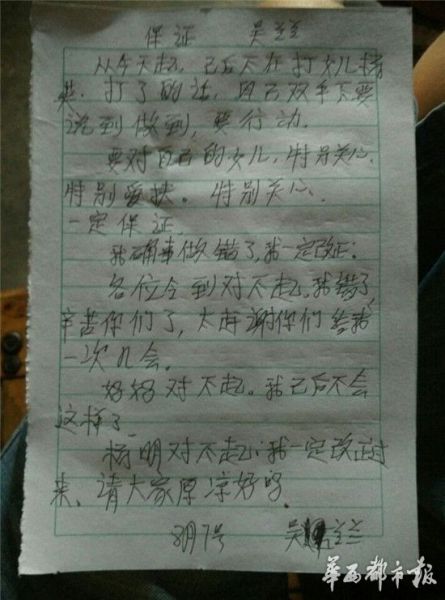 保证 吴兰兰
从今天起，己后不在打女儿杨
英．打了的话，自己双手不要
说到做到，要行动．
要对自己的女儿，特另关心．
特别爱扶。特别关心．
一定保证．
我确事做错了，我一定改正：
各位令到对不起。我错了．
辛苦你们了，太感谢你们给我
一次几会．
好好对不起。我己后不会
这样了．
杨明对不起：我一定改正过
来．请大家原凉好吗．
8月7号 吴兰兰
华西都市报